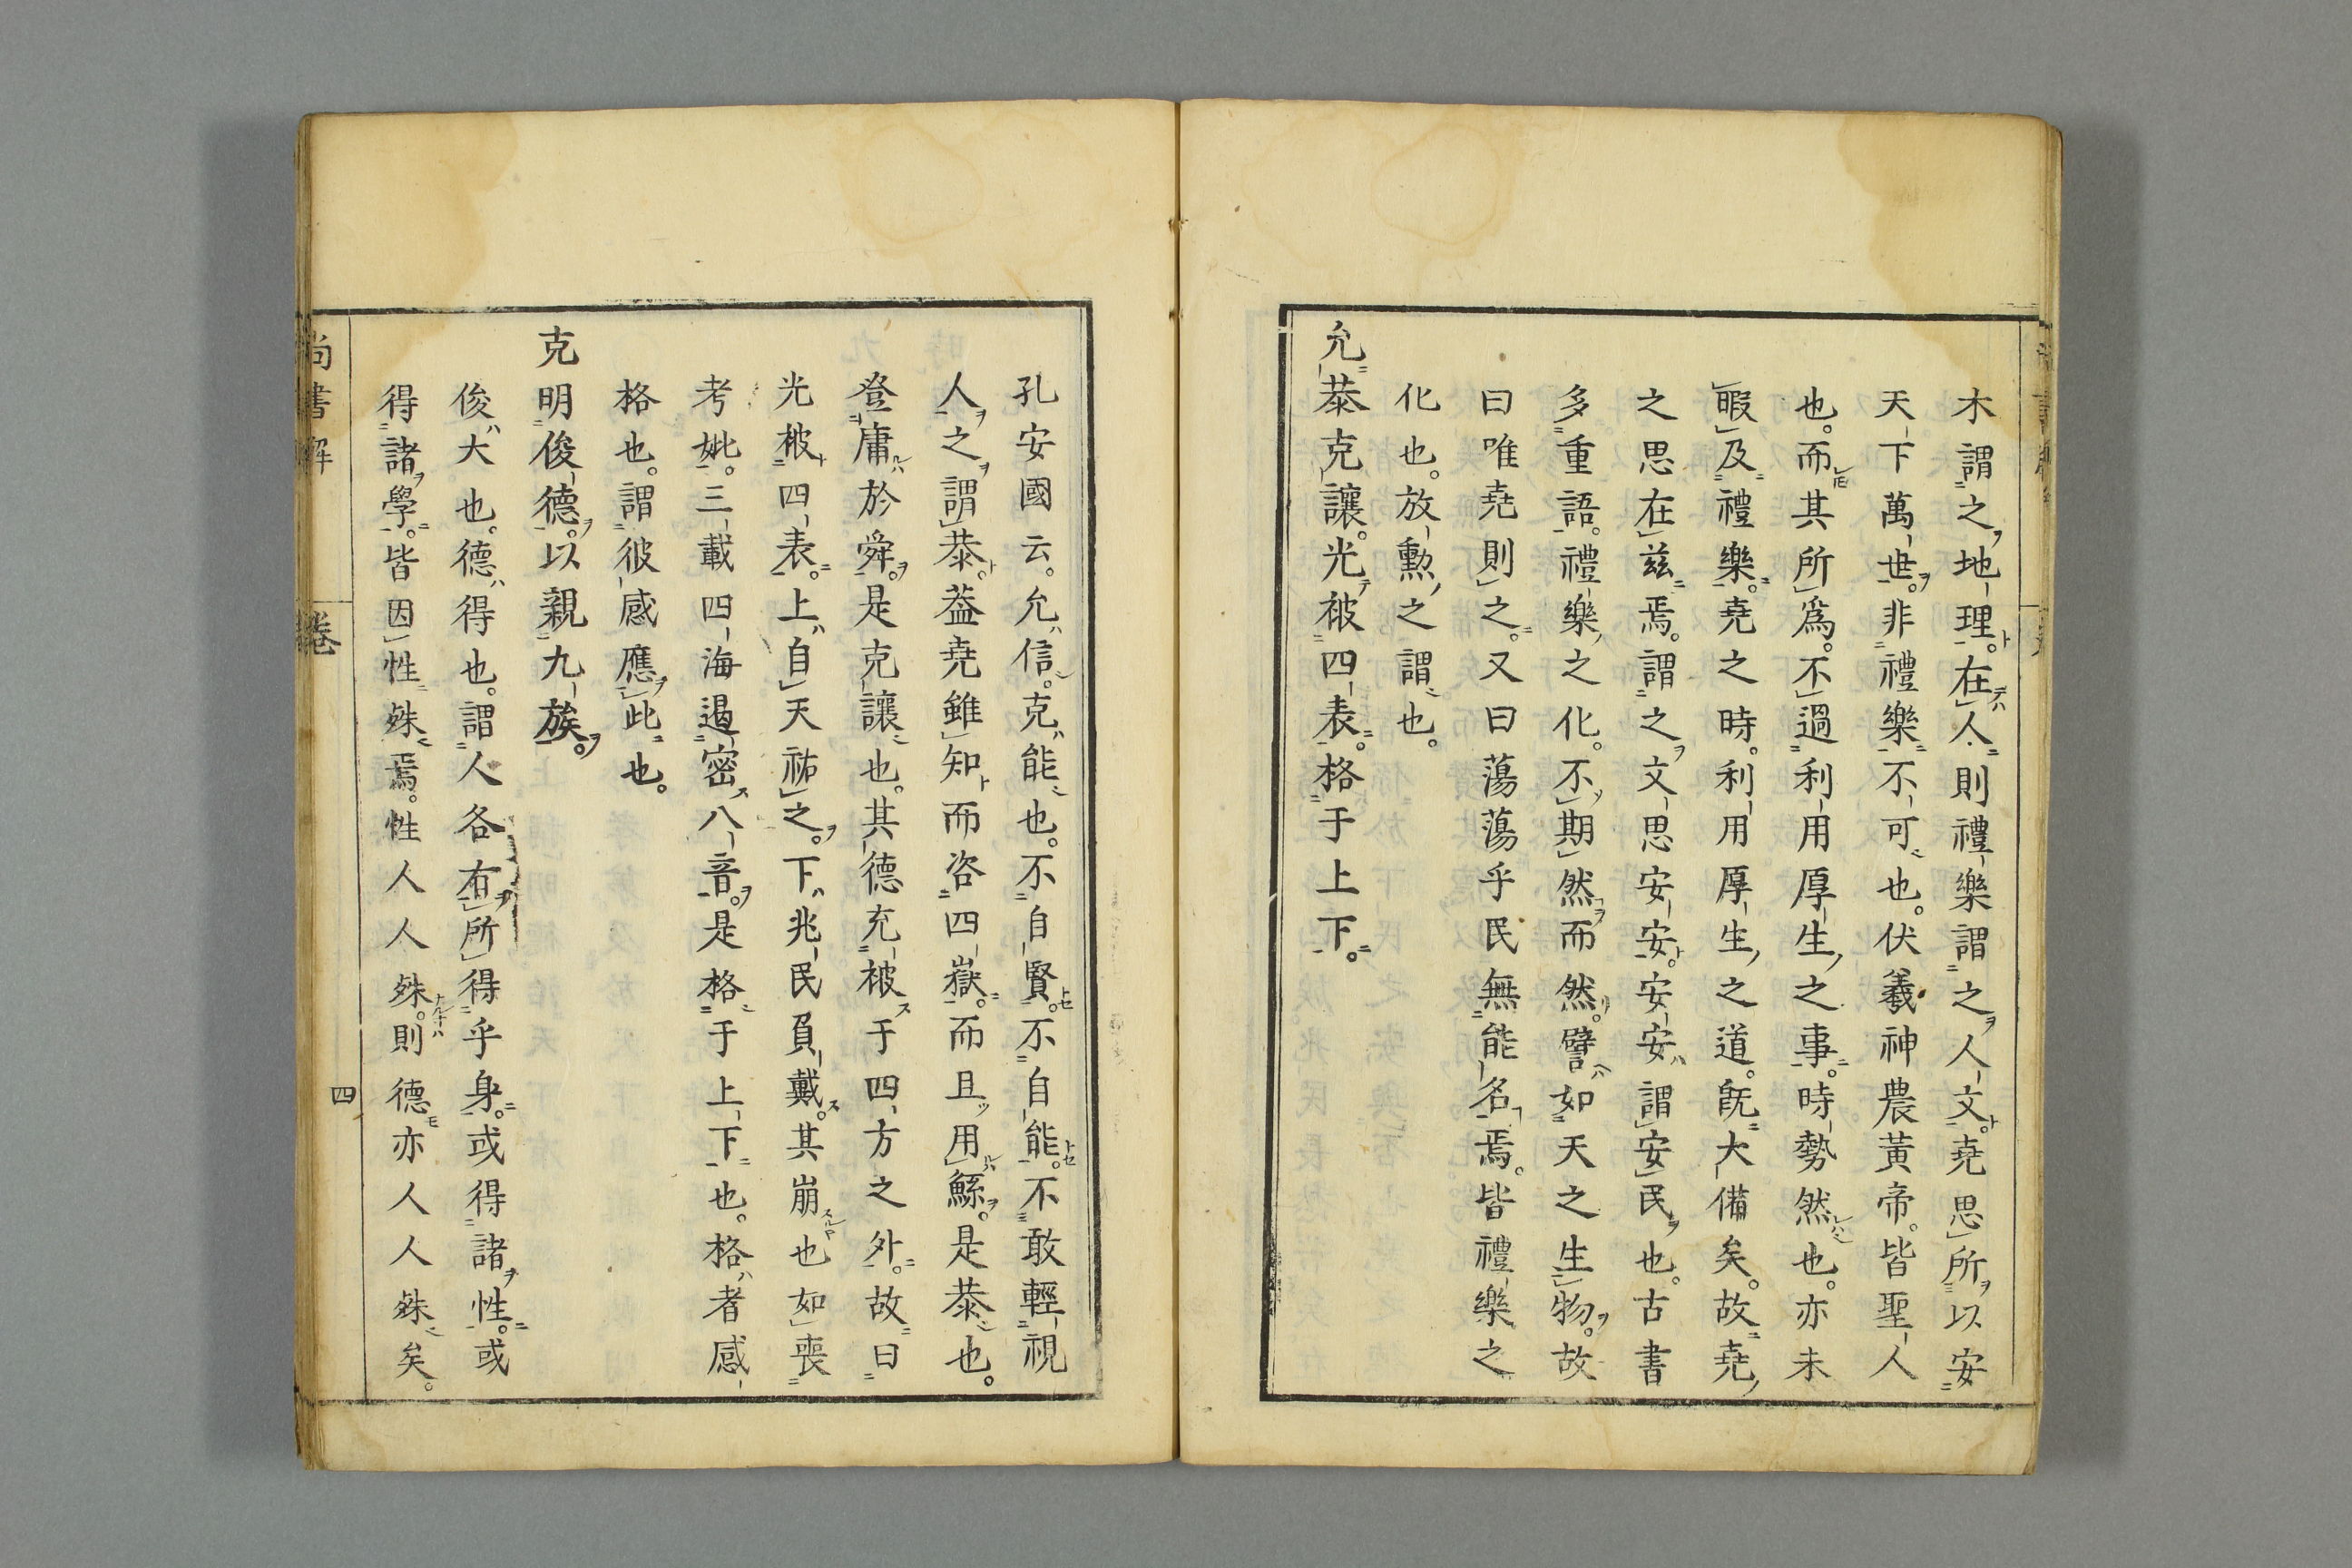 木謂之地理。在人則禮樂謂之人文。堯思所以安
天下萬世。非禮樂不可也。伏羲神農黃帝。皆聖人
也。而其所爲。不過利用厚生之事。時勢然也。亦未
暇及禮樂。堯之時。利用厚生之道。旣大備矣。故堯
之思在兹焉。謂之文思安安。安安謂安民也。古書
多重語。禮樂之化。不期然而然。譬如天之生物。故
曰唯堯則之。又曰蕩蕩乎民無能名焉。皆禮樂之
化也。放勲之謂也。
允恭克讓。光被四表。格于上下。
孔安國云。允信。克能也。不自賢。不自能。不敢輕視
人之謂恭。葢堯雖知而咨四嶽。而且用鯀。是恭也。
登庸於舜。是克讓也。其德充被于四方之外。故曰
光被四表。上自天祐之。下兆民負戴。其崩也如喪
考妣。三載四海遏密八音。是格于上下也。格者感
格也。謂彼感應此也。
克明俊德。以親九族。
俊大也。德得也。謂人各有所得乎身。或得諸性。或
得諸學。皆因性殊焉。性人人殊。則德亦人人殊矣。
尚書解
卷
四